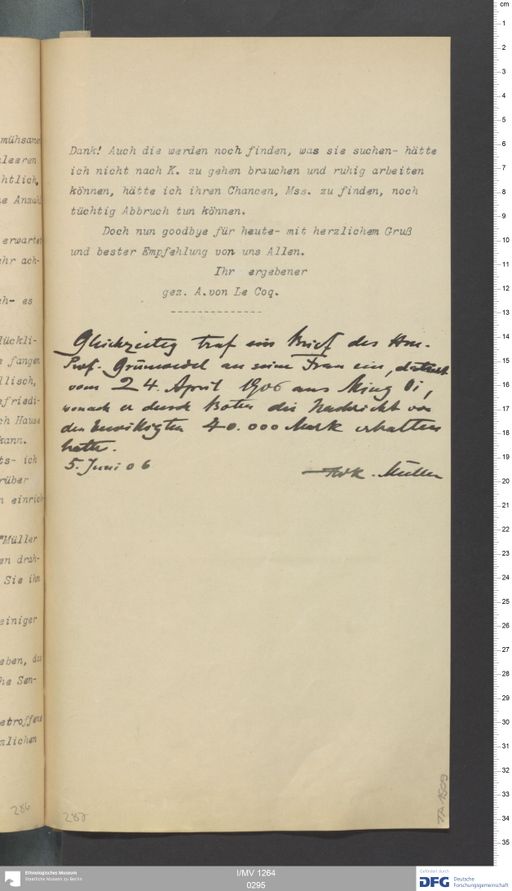 Dank! Auch die werden noch finden, was sie suchen- hätte
ich nicht nach K. zu gehen brauchen und ruhig arbeiten
können, hätte ich ihren Chancen, Mss. zu finden, noch
tüchtig Abbruch tun können.
Doch nun goodbye für heute- mit herzlichem Gruß
und bester Empfehlung von uns Allen.
Ihr ergebener
gez. A.von Le Coq.
Gleichzeitig traf ein Brief des Hrn.
Prof. Grünwedel an seine Frau ein, datiert
vom 24. April 1906 aus Ming Oi,
wonach er durch Boten die Nachricht von
den bewilligten 40.000 Mark erhalten
hatte.
5. Juni 06
Müller
mühsame
leeren
htlich,
e Anzahl
erwartet
hr ach-
h- es
lückli-
e fangen
llisch,
efriedi-
ch Hause
kann.
ts- ich
rüber
n einrich
"Müller
en drah-
Sie ihm
einiger
eben, das
he Sen-
etroffene
nlichen
286
287
TA 1509
Ethnologisches Museum
Staatliche Museen zu Berlin
I/MV 1264
0295
Gefördert durch
DFG Deutsche
Forschungsgemeinschaft
cm
1
2
3
4
5
6
7
8
9
10
11
12
13
14
15
16
17
18
19
20
21
22
23
24
25
26
27
28
29
30
31
32
33
34
35